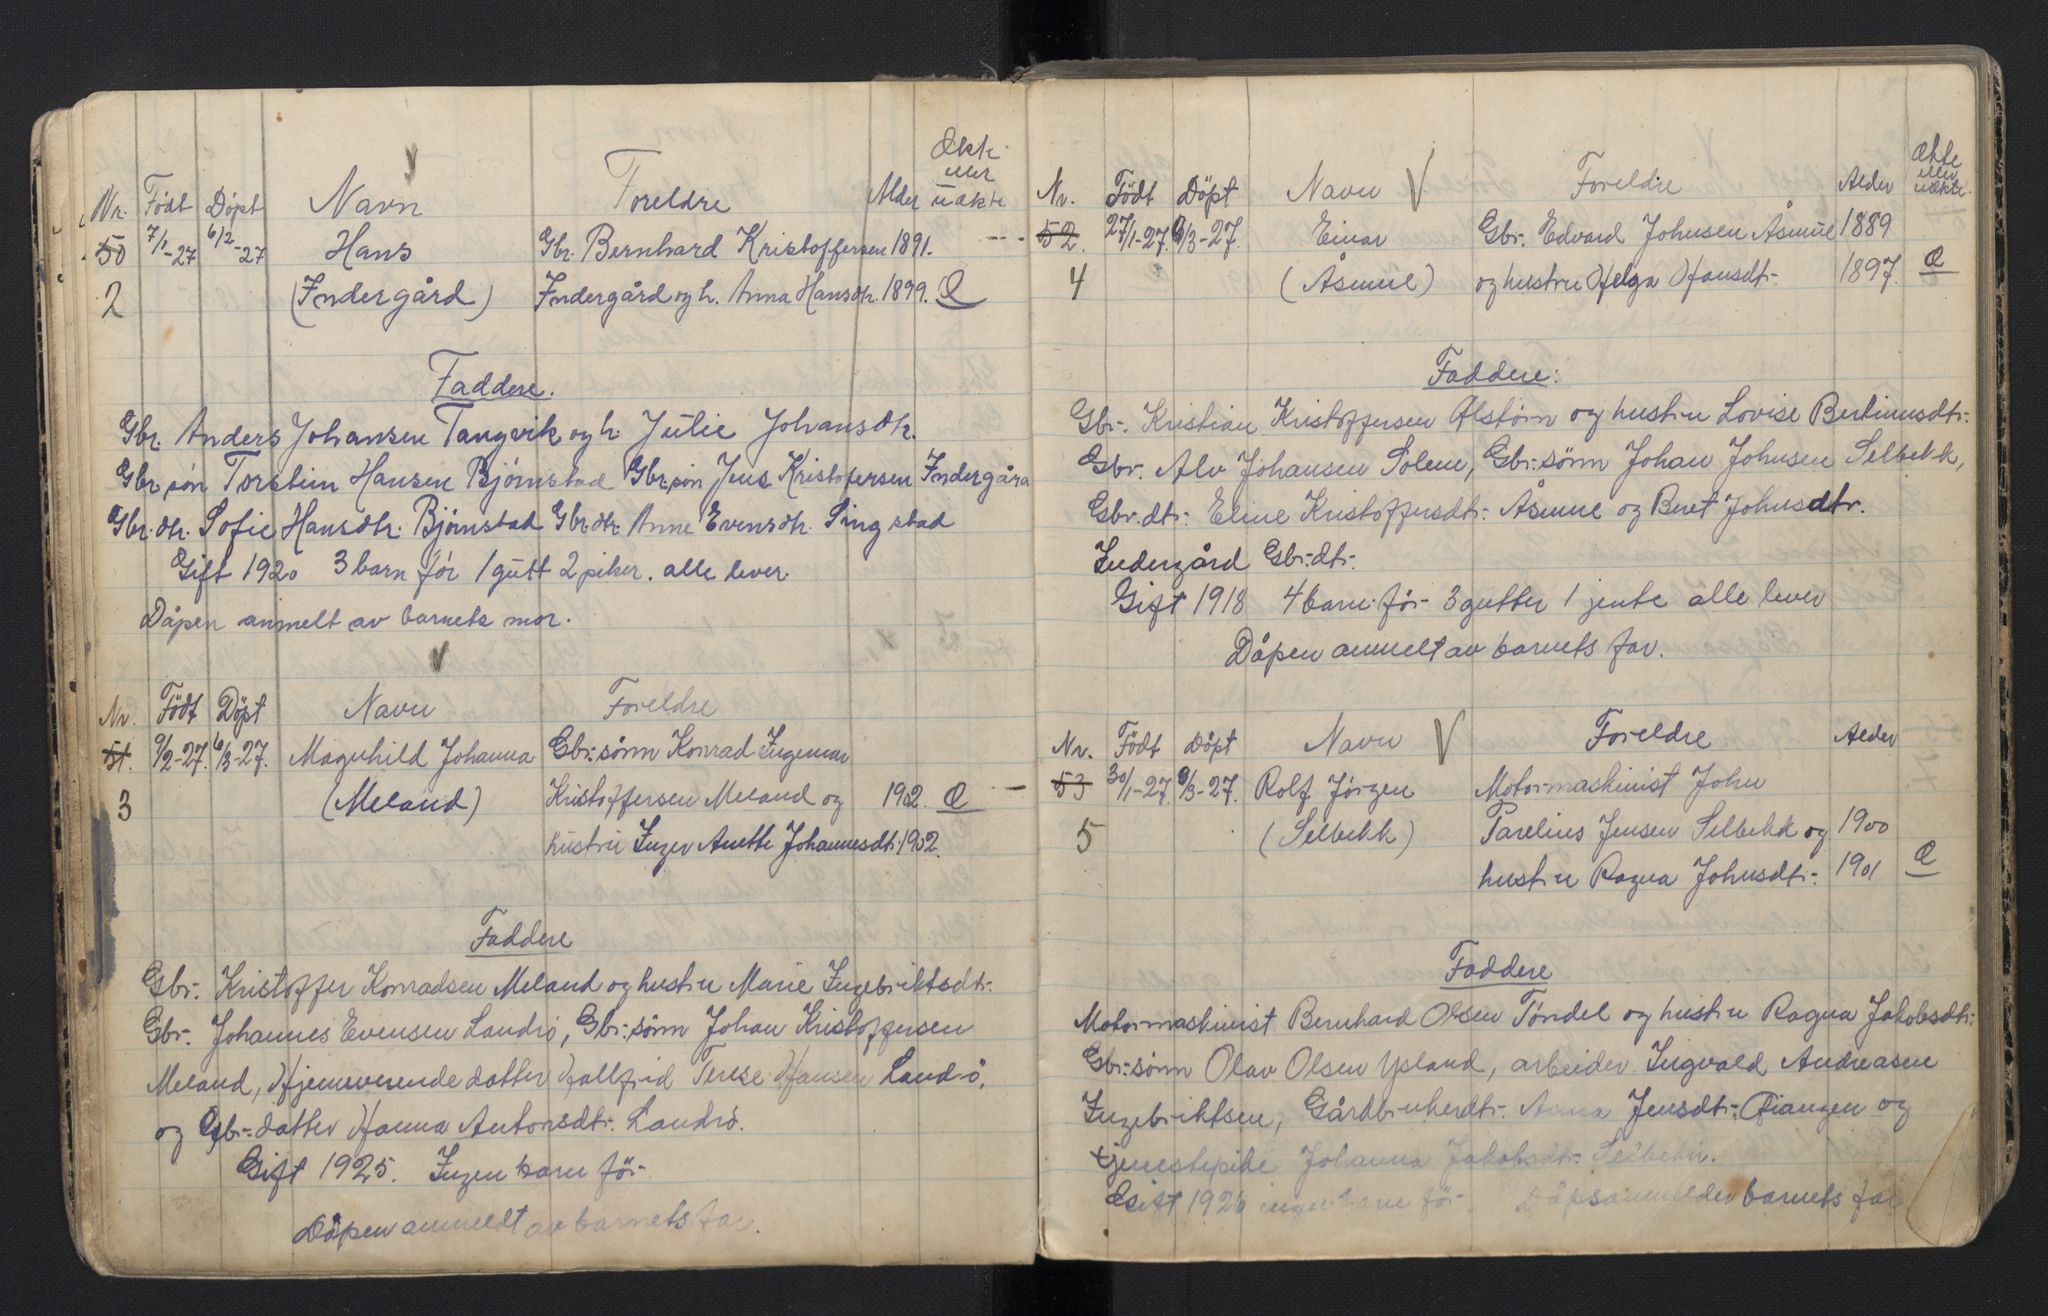 Ækte
eller
uækte
Nr. Födt Döpt Navn Foreldre Alder
50 7/1-27 6/2-27 Hans Gbr. Bernhard Kristoffersen 1891.
2 (Indergård) Indergård og h. Anna Hansdtr. 1899. Æ
Faddere.
Gbr. Anders Johansen Tangvik og h. Julie Johansdtr.
Gbr.søn Torstein Hansen Bjørnstad Gbr.søn Jens Kristofersen Indergård
Gbr.dtr. Sofie Hansdtr. Bjørnstad Gbr.dtr. Anne Evensdtr. Singstad
Gift 1920 3 barn før 1 gutt 2 piker. alle lever.
Dåpen anmelt av barnets mor.
Nr. Födt Döpt Navn Foreldre
51. 9/2-27. 6/3-27. Magnhild Johanna Gbr.sønn Konrad Ingemar
3 (Meland) Kristoffersen Meland og 1902. Æ
hustru Inger Anette Johannesdtr. 1902.
Faddere
Gbr. Kristoffer Konradsen Meland og hustru Marie Ingebriktsdtr.
Gbr. Johannes Evensen Landrö, Gbr.sønn Johan Kristoffersen
Meland, Hjemmeværende datter Hallfrid Terese Hansen Landrö,
og Gbr.datter Hanna Antonsdtr. Landrö.
Gift 1925. Ingen barn før.
Dåpen anmeldt av barnets far.
Ækte
eller
uækte.
Nr. Födt Döpt Navn Foreldre Alder
52. 27/1-27. 6/3-27. Einar Gbr. Edvard Johnsen Åsmul 1889
4 (Åsmul) og hustru Helga Hansdtr. 1897. Æ
Faddere:
Gbr. Kristian Kristoffersen Ulstörn og hustru Lovise Bertinusdtr.
Gbr. Alv Johansen Solem, Gbr.sønn Johan Johnsen Selbekk,
Gbr.dtr. Eline Kristoffersdtr. Åsmul og Beret Johnsdtr.
Indergård Gbr.dtr.
Gift 1918 4 barn før 3 gutter 1 jente alle lever
Dåpen anmelt av barnets far.
Nr. Födt Döpt Navn Foreldre Alder
53 30/1-27 6/3-27. Rolf Jörgen Motormaskinist John
5 (Selbekk) Parelius Jensen Selbekk og 1900
hustru Ragna Johnsdtr. 1901 Æ
Faddere
Motormaskinist Bernhard Olsen Töndel og hustru Ragna Jakobsdtr.
Gbr.sønn Olav Olsen Ysland, arbeider Ingvald Andreasen
Ingebriktsen, Gårdbrukerdtr. Anna Jensdtr. Fjangen og
tjenestepike Johanna Jakobsdtr. Selbekk.
Gift 1926 ingen barn før. Dåpsanmelder barnets far